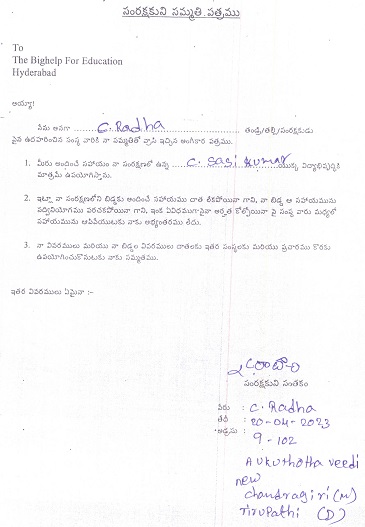 సంరక్షకుని సమ్మతి పత్రము
To
The Bighelp For Education
Hyderabad
అయ్యా!
నేను అనగా ........ C. Radha ........ తండ్రి/తల్లి/సంరక్షకుడు
పైన ఉదహరించిన సంస్థ వారికి నా సమ్మతితో వ్రాసి ఇచ్చిన అంగీకార పత్రము.
1. మీరు అందించే సహాయం నా సంరక్షణలో ఉన్న ..... C. Sasi Kumar ..... యొక్క విద్యాభివృద్ధికి
మాత్రమే ఉపయోగిస్తాను.
2. ఇట్లా నా సంరక్షణలోని బిడ్డకు అందించే సహాయము దాత లేకపోయినా గాని, నా బిడ్డ ఆ సహాయమును
సద్వినియోగము పరచకపోయినా గాని, ఇంక ఏవిధముగానైనా అర్హత కోల్పోయినా పై సంస్థ వారు మధ్యలో
సహాయమును ఆపివేయుటకు నాకు అభ్యంతరము లేదు.
3. నా వివరములు మరియు నా బిడ్డల వివరములు దాతలకు ఇతర సంస్థలకు మరియు ప్రచారము కొరకు
ఉపయోగించుకొనుటకు నాకు సమ్మతము.
ఇతర వివరములు ఏమైనా :-
సంరక్షకుని సంతకం
పేరు : C. Radha
తేదీ : 20-04-2023
అడ్రసు :
9-102
Avkuthotta veedi
new
chandragiri (M)
Tirupathi (D)